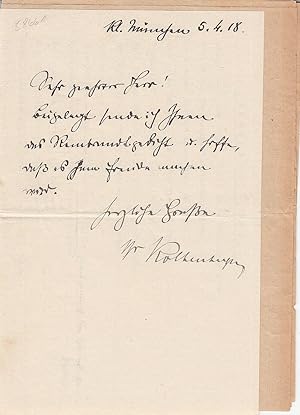 Kl. München 5.4.18.
Sehr geehrter Herr!
Beigelegt sende ich Ihnen
das Rembrandtgedicht u. hoffe,
daß es Ihnen Freude machen
wird.
Herzliche Grüße
Ihr Kolbenheyer